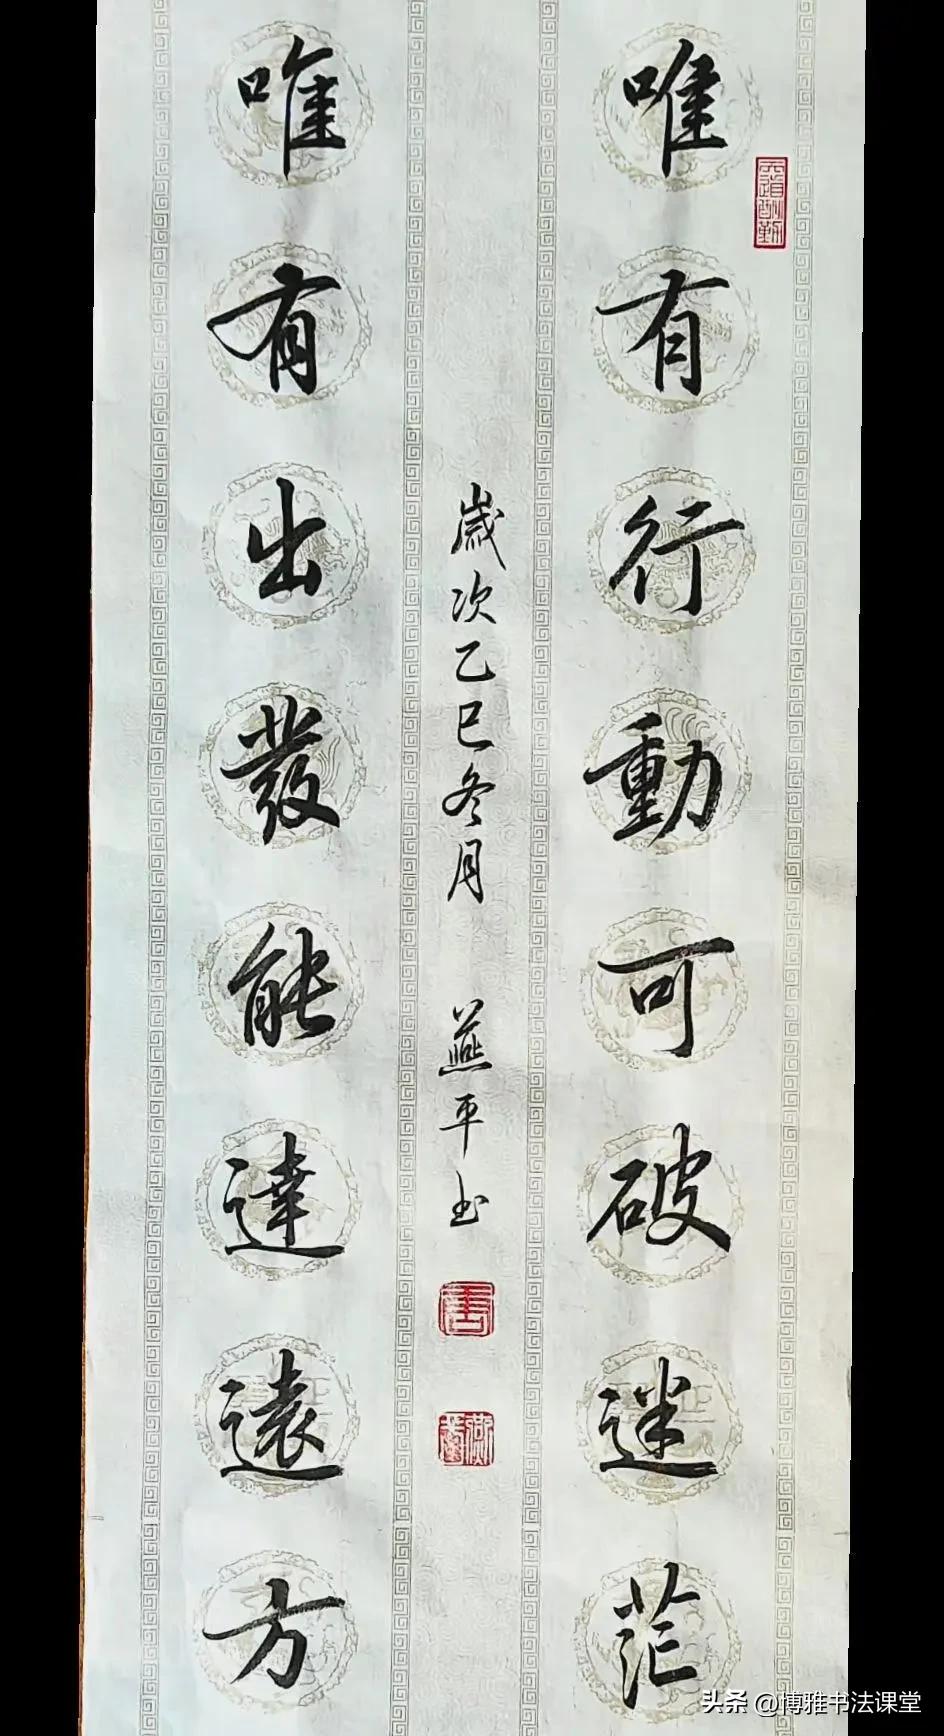 唯有行動可破迷茫
天道酬勤
唯有出發能達遠方
歲次乙巳冬月 燕平书
头条 @博雅书法课堂